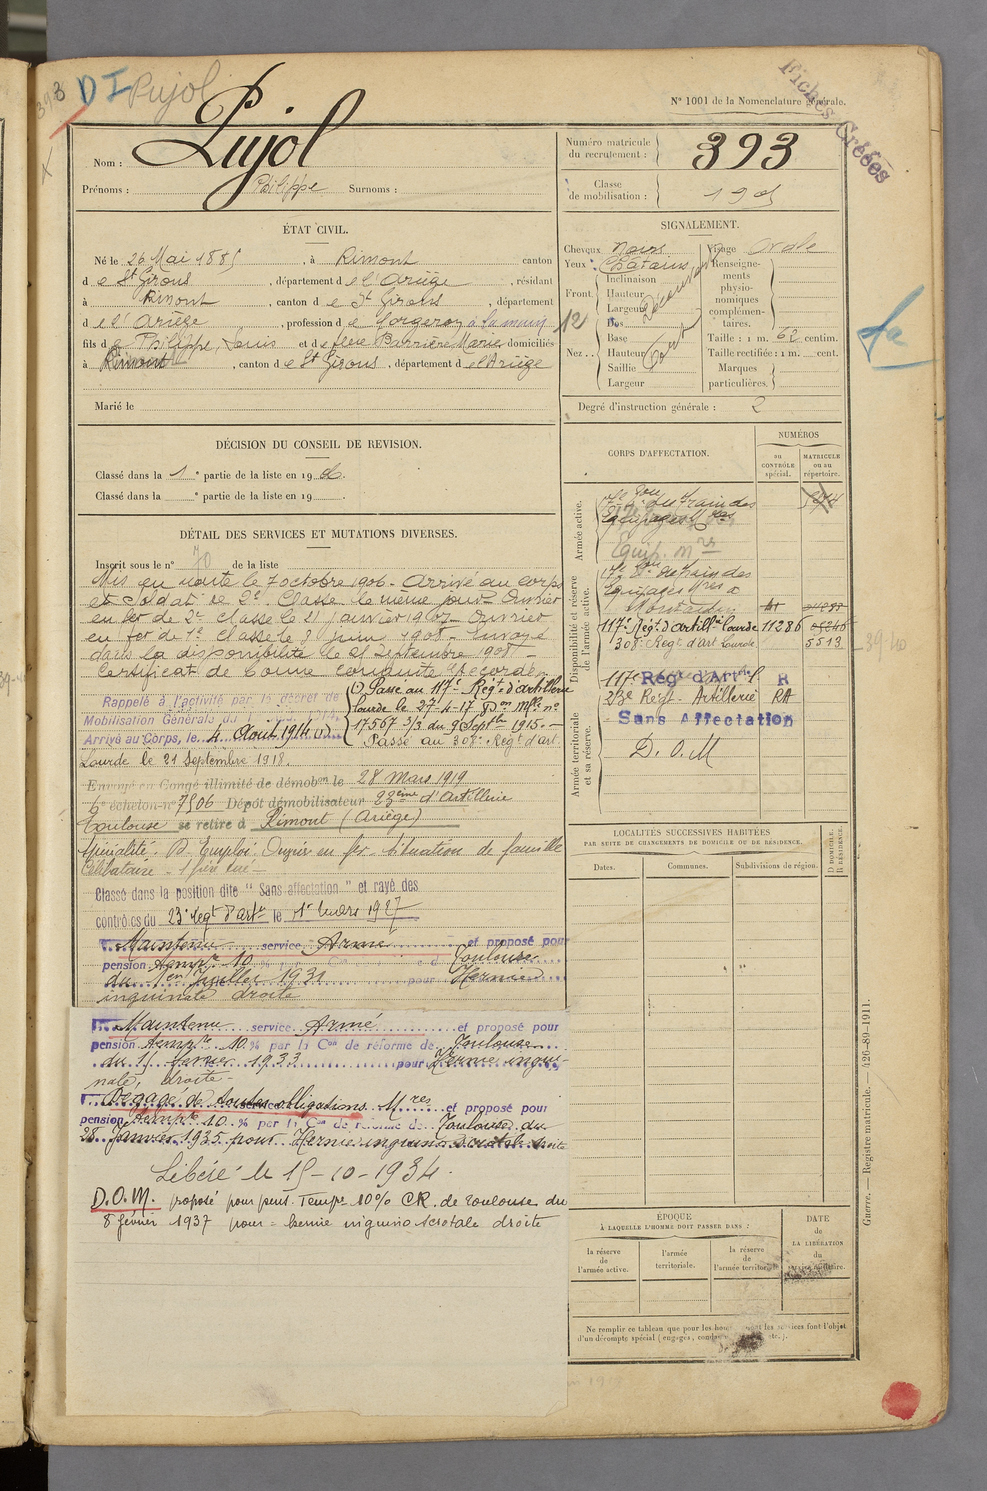 393
D I Pujol
N° 1001 de la Nomenclature générale.
Fiches Créées
Nom : Pujol
Prénoms : Philippe Surnoms :
Numéro matricule
du recrutement : 393
Classe
de mobilisation : 1905
ÉTAT CIVIL.
Né le 26 Mai 1885, à Rimont canton
de St Girons, département de l'Ariège, résidant
à Rimont, canton de St Girons, département
de l'Ariège, profession de forgeron à la main
fils de Philippe, Louis et de feue Barrière Marie domiciliés
à Rimont, canton de St Girons, département de l'Ariège
Marié le
SIGNALEMENT.
Cheveux noirs Visage Ovale
Yeux : Châtains
Renseigne-
ments
physio-
nomiques
complémen-
taires.
Front.
Inclinaison
Hauteur
Largeur
Nez..
Dos
Base
Hauteur
Saillie
Largeur
12
Taille : 1 m. 62 centim.
Taille rectifiée : 1 m. cent.
Marques
particulières.
Degré d'instruction générale : 2
DÉCISION DU CONSEIL DE REVISION.
Classé dans la 1e partie de la liste en 1906.
Classé dans la e partie de la liste en 19 .
DÉTAIL DES SERVICES ET MUTATIONS DIVERSES.
Inscrit sous le n° 70 de la liste
Mis en route le 7 octobre 1906 - Arrivé au corps
et Soldat de 2e Classe le même jour. Ouvrier
en fer de 2e classe le 21 janvier 1907 - Ouvrier
en fer de 1e classe le juin 1908 - Envoyé
dans la disponibilité le 25 Septembre 1908 -
Certificat de bonne conduite Accordé -
Rappelé à l'activité par le décret de
Mobilisation Générale du
Arrivé au Corps, le 4 Août 1914 (1)
(1) Passé au 117e Régt d'artillerie
lourde le 27-4-17 Don Mlle n°
17567 3/3 du 9 Septbre 1915. -
Passé au 308e Régt d'art.
Lourde le 21 Septembre 1918.
Envoyé en Congé illimité de démobon le 28 Mars 1919
6e échelon n° 7506 Dépôt démobilisateur 23ème d'Artillerie
Toulouse se retire à Rimont (Ariège)
Spécialité. D. Emploi. Ouvrier en fer. Situation de famille
Célibataire - 1 frère tué -
Classé dans la position dite "Sans affectation" et rayé des
contrôles du 23e Régt d'Artie le 1er Mars 1927
Maintenu service Armé et proposé pour
pension tempre 10 % Toulouse
du 1er Juillet 1931 pour Hernie
inguinale droite
Maintenu service Armé et proposé pour
pension tempre 10 % par la Con de réforme de Toulouse
du 11 Janvier 1933 pour Hernie ingui-
nale, droite -
Dégagé de toutes obligations Mres et proposé pour
pension tempre 10 % par la Con de réforme de Toulouse du
28 Janvier 1935 pour Hernie inguino scrotale droite
Libéré le 15-10-1934.
D.O.M. proposé pour pens. Tempre 10% CR. de Toulouse du
8 février 1937 pour = hernie inguino scrotale droite
CORPS D'AFFECTATION.
NUMÉROS
au
CONTRÔLE
spécial.
MATRICULE
ou au
répertoire.
Armée active.
17e Eon du train des
Equipages Mres
Equip. Mres
Disponibilité et réserve
de l'armée active.
17e Eon du train des
Equipages Mres à
Montauban
117e Régt d'Artillie lourde 11286
308e Régt d'art Lourde 5513
39/40
Armée territoriale
et sa réserve.
117e Rég. d'Artie L R
23e Régt Artillerie RA
Sans Affectation
D. O. M
LOCALITÉS SUCCESSIVES HABITÉES
PAR SUITE DE CHANGEMENTS DE DOMICILE OU DE RÉSIDENCE.
Dates.
Communes.
Subdivisions de région.
D DOMICILE.
R RÉSIDENCE.
ÉPOQUE
À LAQUELLE L'HOMME DOIT PASSER DANS :
la réserve
de
l'armée active.
l'armée
territoriale.
la réserve
de
l'armée territoriale.
DATE
de
LA LIBÉRATION
du
service militaire.
Ne remplir ce tableau que pour les hommes dont les services font l'objet
d'un décompte spécial (engagés, etc.).
Guerre. — Registre matricule. — 426-89-1911.